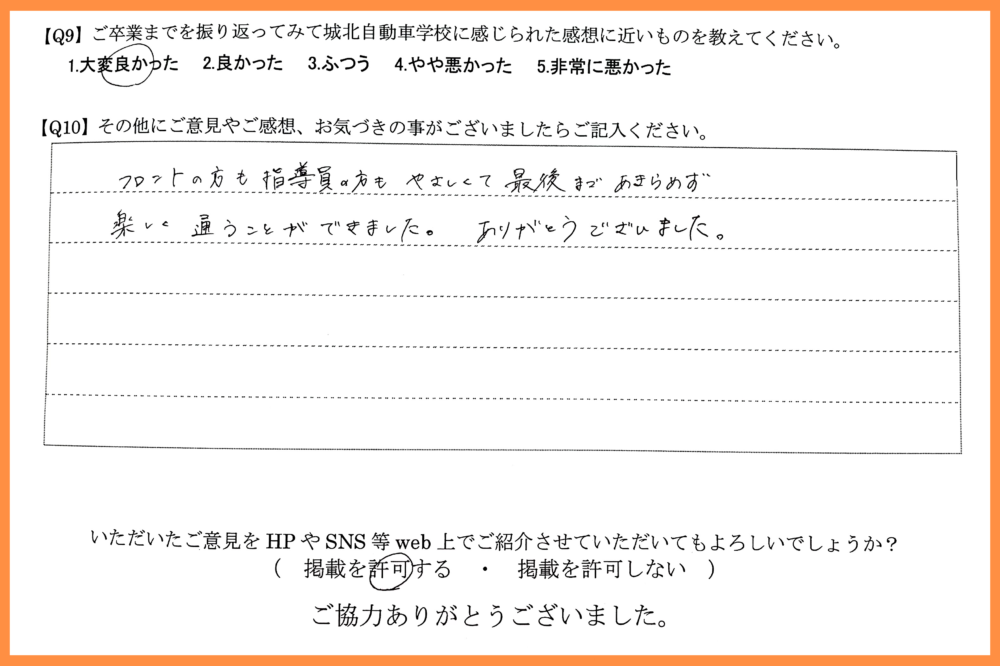 【Q9】ご卒業までを振り返ってみて城北自動車学校に感じられた感想に近いものを教えてください。
1.大変良かった 2.良かった 3.ふつう 4.やや悪かった 5.非常に悪かった
【Q10】その他にご意見やご感想、お気づきの事がございましたらご記入ください。
フロントの方も指導員の方も やさしくて 最後まで あきらめず
楽しく 通うことができました。 ありがとうございました。
いただいたご意見を HP や SNS 等 web 上でご紹介させていただいてもよろしいでしょうか?
( 掲載を許可する ・ 掲載を許可しない )
ご協力ありがとうございました。